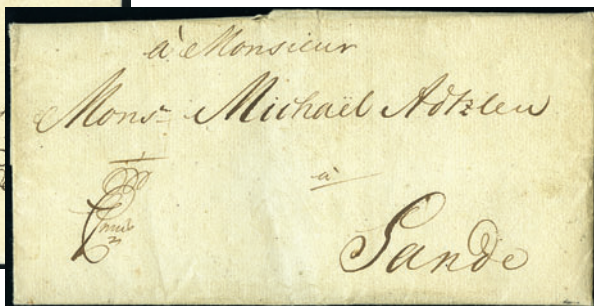 à Monsieur
Mons.r Michaël Adtzlew
à
Sande